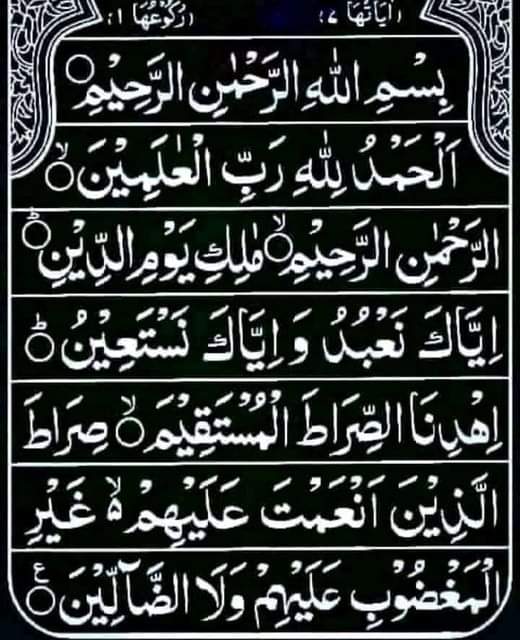 اٰيَاتُهَا ٧ رُكُوْعُهَا ١
بِسْمِ اللّٰهِ الرَّحْمٰنِ الرَّحِيْمِ ۝
اَلْحَمْدُ لِلّٰهِ رَبِّ الْعٰلَمِيْنَ ۝ۙ
الرَّحْمٰنِ الرَّحِيْمِ ۝ۙ مٰلِكِ يَوْمِ الدِّيْنِ ۝ؕ
اِيَّاكَ نَعْبُدُ وَ اِيَّاكَ نَسْتَعِيْنُ ۝ؕ
اِهْدِنَا الصِّرَاطَ الْمُسْتَقِيْمَ ۝ۙ صِرَاطَ
الَّذِيْنَ اَنْعَمْتَ عَلَيْهِمْ ۙ۬ۙ غَيْرِ
الْمَغْضُوْبِ عَلَيْهِمْ وَلَا الضَّآلِّيْنَ ۝ع